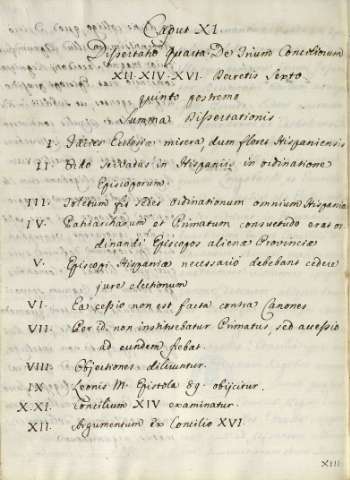 Caput XI.
Dissertatio Quarta De Trium Conciliorum
XII. XIV. XVI. Decretis Sexto
quinto postremo
Summa Dissertationis
I. Facies Ecclesiæ misera, dum flores Hispaniensis
II. Ordo Servatus in Hispaniis in ordinatione
Episcoporum.
III. Toletum fit Sedes ordinationum omnium Hispaniæ
IV. Patriarcharum et Primatum consuetudo erat or
dinandi Episcopos alienæ Provinciæ
V. Episcopi Hispaniæ necessario debebant cedere
jure electionum
VI. Ea cessio non est facta contra Canones
VII. Per id non instituebatur Primatus, sed accessio
ad eundem fiebat.
VIII. Objectiones diluuntur.
IX. Leonis M. Epistola 89. objicitur.
X. XI. Concilium XIV examinatur.
XII. Argumentum ex Concilio XVI.
XIII